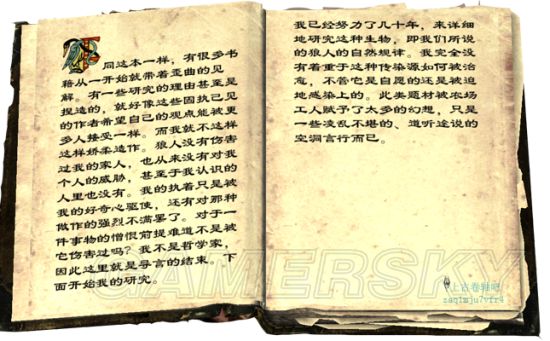 同这本一样，有很多书
籍从一开始就带着歪曲的见
解。有一些研究的理由甚至是
捏造的，就好像这些固执己见
的作者希望自己的观点能被更
多人接受一样。而我就不这样
这样矫柔造作。狼人没有伤害
过我的家人，也从来没有对我
个人的威胁，甚至于我认识的
人里也没有。我的执着只是被
我的好奇心驱使，还有对那种
做作的强烈不满罢了。对于一
件事物的憎恨前提难道不是被
它伤害过吗？我不是哲学家，
因此这里就是导言的结束。下
面开始我的研究。
我已经努力了几十年，来详细
地研究这种生物，即我们所说
的狼人的自然规律。我完全没
有着重于这种传染源如何被治
愈，不管它是自愿的还是被迫
地感染上的。此类题材被农场
工人赋予了太多的幻想，只是
一些凌乱不堪的、道听途说的
空洞言行而已。
GAMERSKY
上古卷轴吧
zaq1mju7vfr4